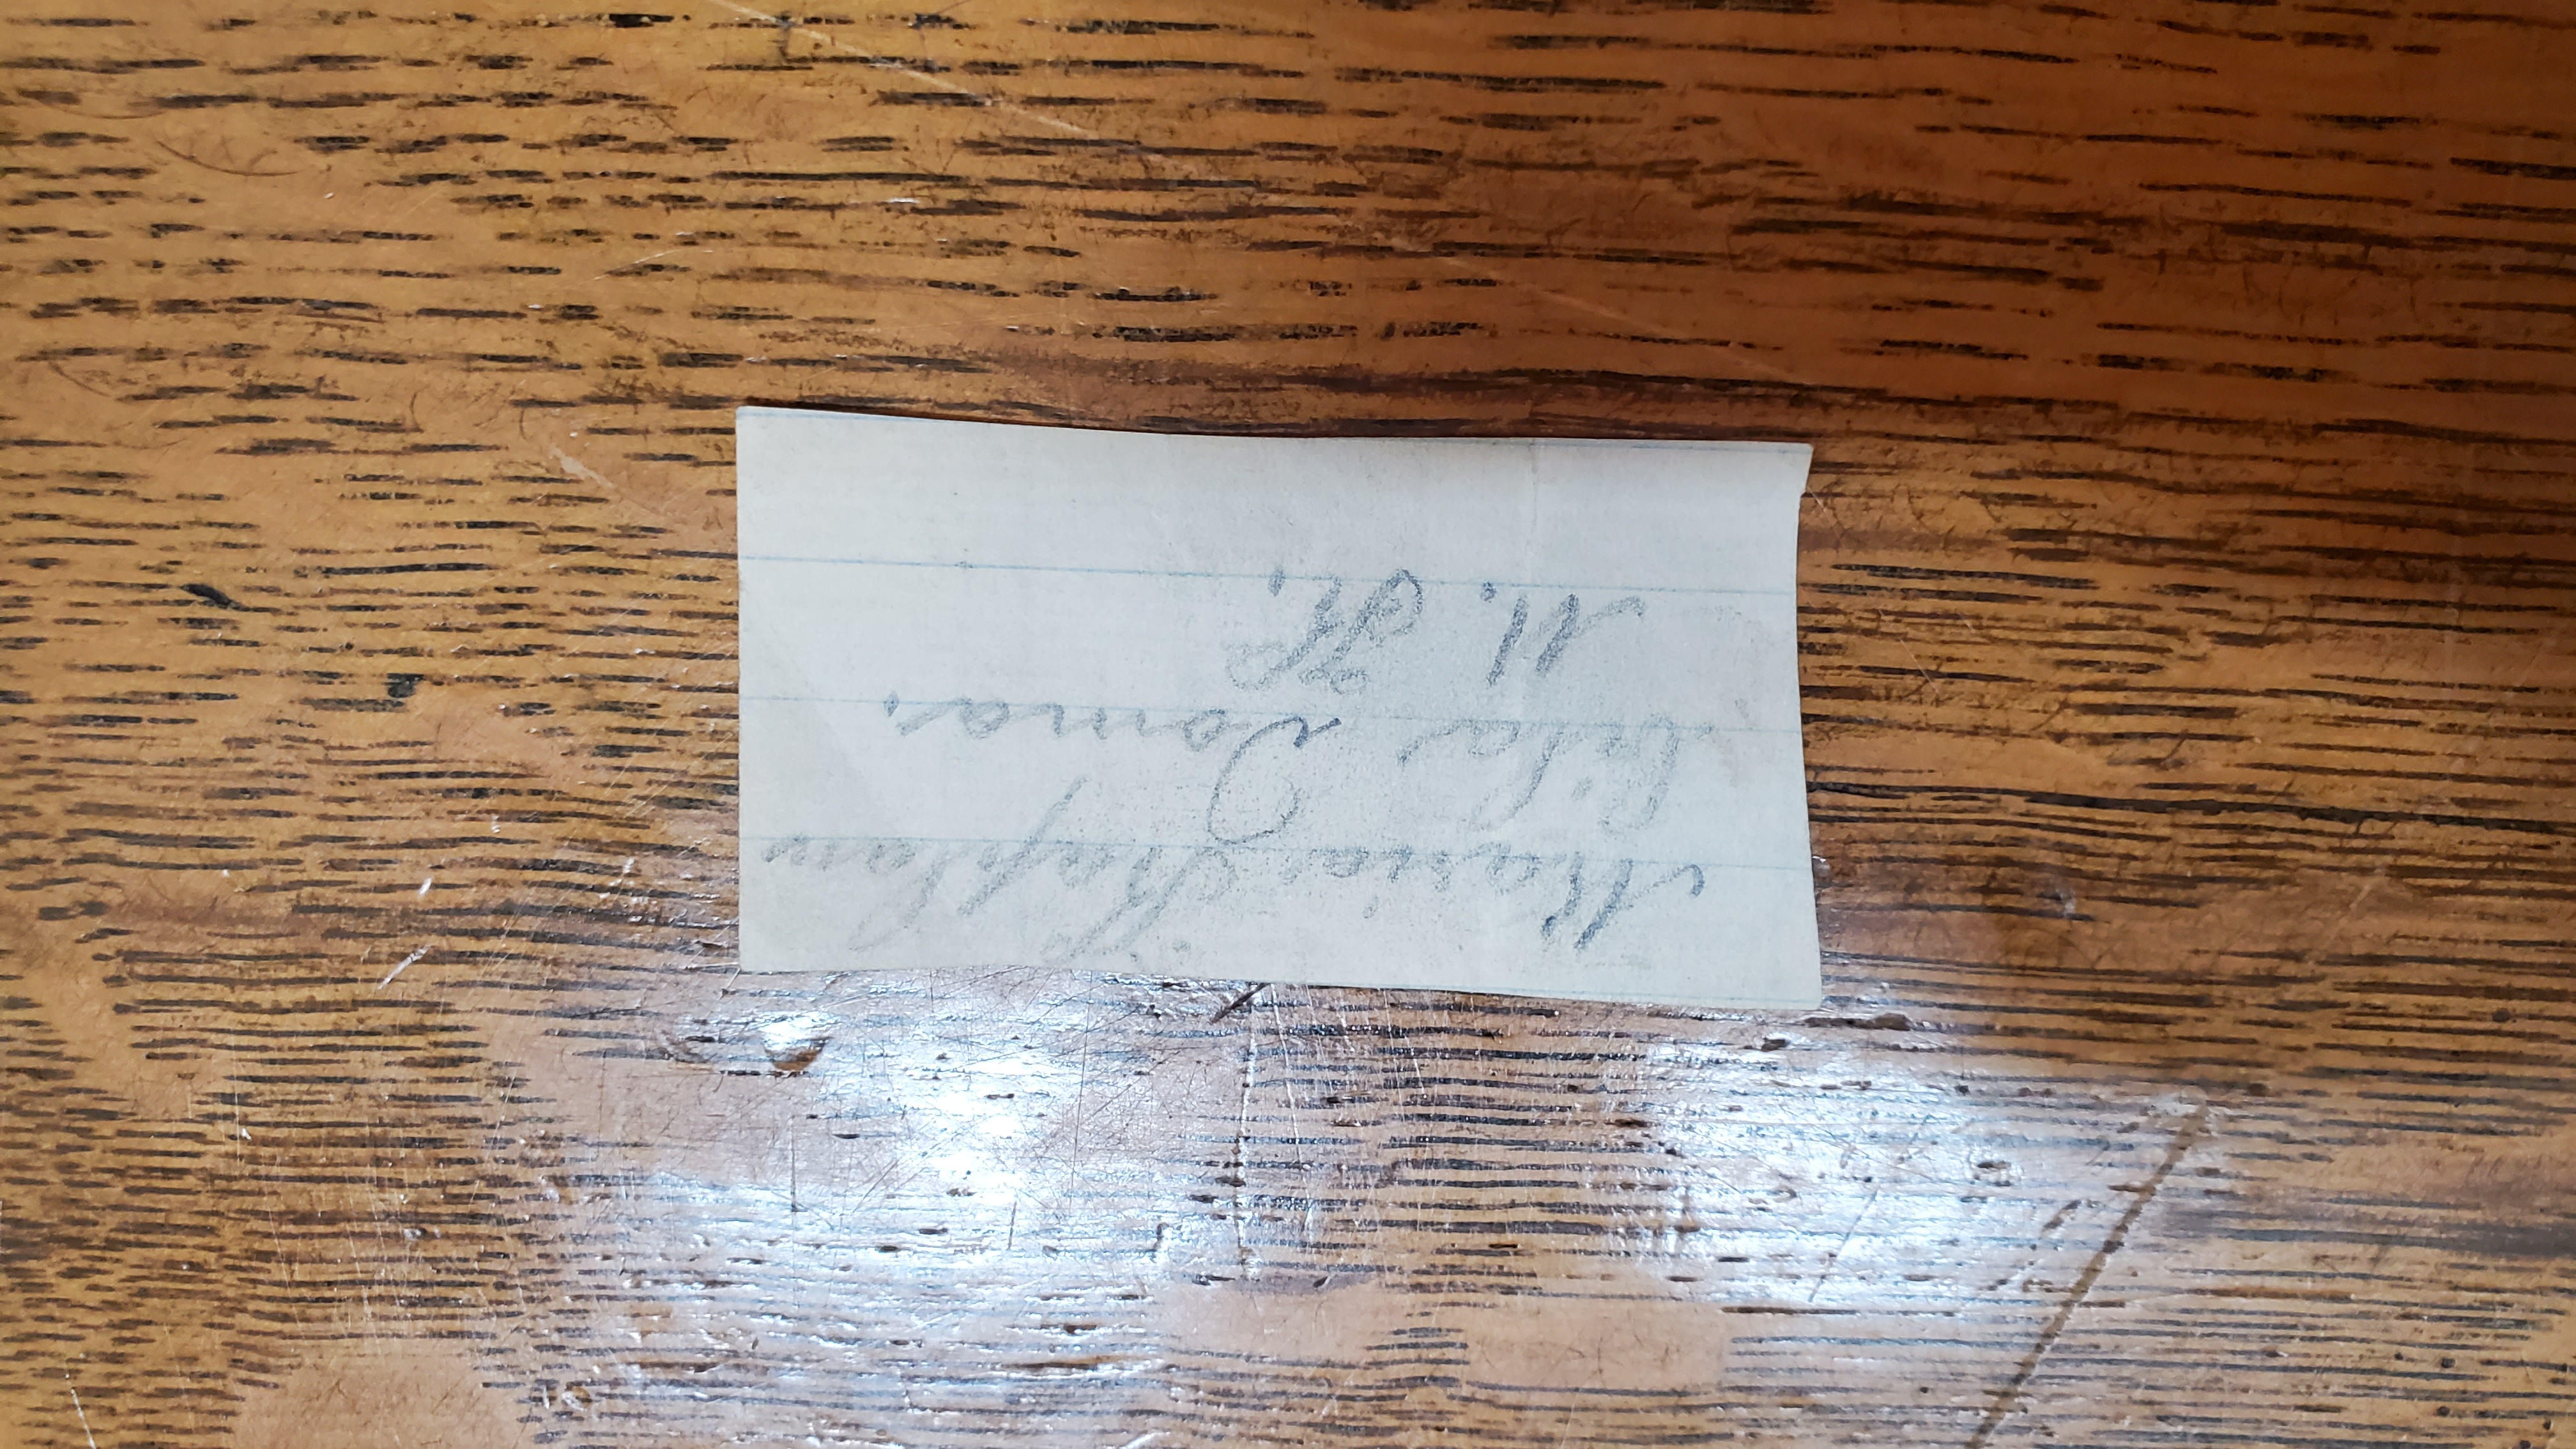 Maria Kaplan
bila doma.
M. K.